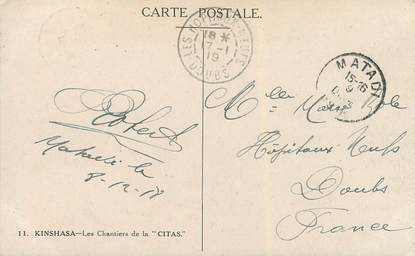 CARTE POSTALE.
LES HOPITAUX-NEUFS
18 *
7-1
19
DOUBS
MATADI
15-16
9
Robert
Matadi le
8-12-18
Melle Marie
Hôpitaux-Neufs
Doubs
France
11. KINSHASA—Les Chantiers de la "CITAS."